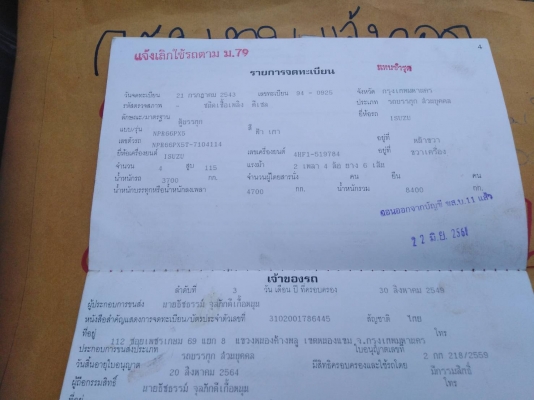 4
แจ้งเลิกใช้รถตาม ม.79
รายการจดทะเบียน
วันจดทะเบียน 21 กรกฎาคม 2543 เลขทะเบียน 84 - 0825 จังหวัด กรุงเทพมหานคร
รหัสตรวจสภาพ - ชนิดเชื้อเพลิง ดีเซล ประเภท รถบรรทุก ส่วนบุคคล
ลักษณะ/มาตรฐาน ตู้บรรทุก ยี่ห้อรถ ISUZU
แบบ/รุ่น NPR66PX5 สี ฟ้า เทา
เลขตัวรถ อยู่ที่ หน้าขวา
ยี่ห้อเครื่องยนต์ ISUZU เลขเครื่องยนต์ อยู่ที่ ขวาเครื่อง
จำนวน 4 สูบ 115 แรงม้า 2 เพลา 4 ล้อ ยาง 6 เส้น
น้ำหนักรถ 3700 กก. จำนวนผู้โดยสารนั่ง คน ยืน คน
น้ำหนักบรรทุกหรือน้ำหนักลงเพลา 4700 กก. น้ำหนักรวม 8400 กก.
ถอนออกจากบัญชี ขส.บ.11 แล้ว
22 มิ.ย. 2561
เจ้าของรถ
ลำดับที่ 3 วัน เดือน ปี ที่ครอบครอง 30 สิงหาคม 2549
ผู้ประกอบการขนส่ง นายธัชธรรม์
หนังสือสำคัญแสดงการจดทะเบียน/บัตรประจำตัวเลขที่ 3102001786445 สัญชาติ ไทย
ที่อยู่ 112 ซอยเพชรเกษม 69 แยก 8 แขวงหนองค้างพลู เขตหนองแขม จ.กรุงเทพมหานคร โทร
ประกอบการขนส่งประเภท รถบรรทุก ส่วนบุคคล ใบอนุญาตเลขที่ 2 กท 218/2559
วันสิ้นอายุใบอนุญาต 20 สิงหาคม 2564 มีสิทธิครอบครองและใช้รถโดย มีกรรมสิทธิ์
ผู้ถือกรรมสิทธิ์ นายธัชธรรม์ โทร
ที่อยู่